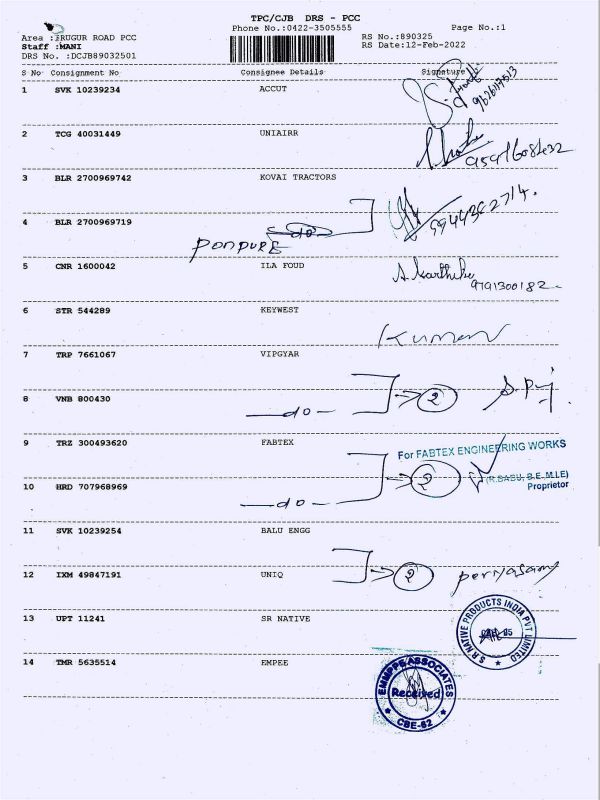 TPC/CJB DRS - PCC
Phone No.:0422-3505555 Page No.:1
Area :IRUGUR ROAD PCC RS No.:890325
Staff :MANI RS Date:12-Feb-2022
DRS No. :DCJB89032501
S No Consignment No Consignee Details Signature
1 SVK 10239234 ACCUT
9626117513
2 TCG 40031449 UNIAIRR
3 BLR 2700969742 KOVAI TRACTORS
4 BLR 2700969719
PONPURE
5 CNR 1600042 ILA FOUD A. Karthike
9791300182
6 STR 544289 KEYWEST
Kumar
7 TRP 7661067 VIPGYAR
8 VNB 800430 -do- 2
9 TRZ 300493620 FABTEX
For FABTEX ENGINEERING WORKS
2 (R.BABU, B.E.,M.I.E)
Proprietor
10 HRD 707968969 -do-
11 SVK 10239254 BALU ENGG
12 IXM 49847191 UNIQ 2 periyasamy
13 UPT 11241 SR NATIVE
S.R NATIVE PRODUCTS INDIA PVT LIMITED
14 TMR 5635514 EMPEE
EMMPPE ASSOCIATES
Received
CBE-62